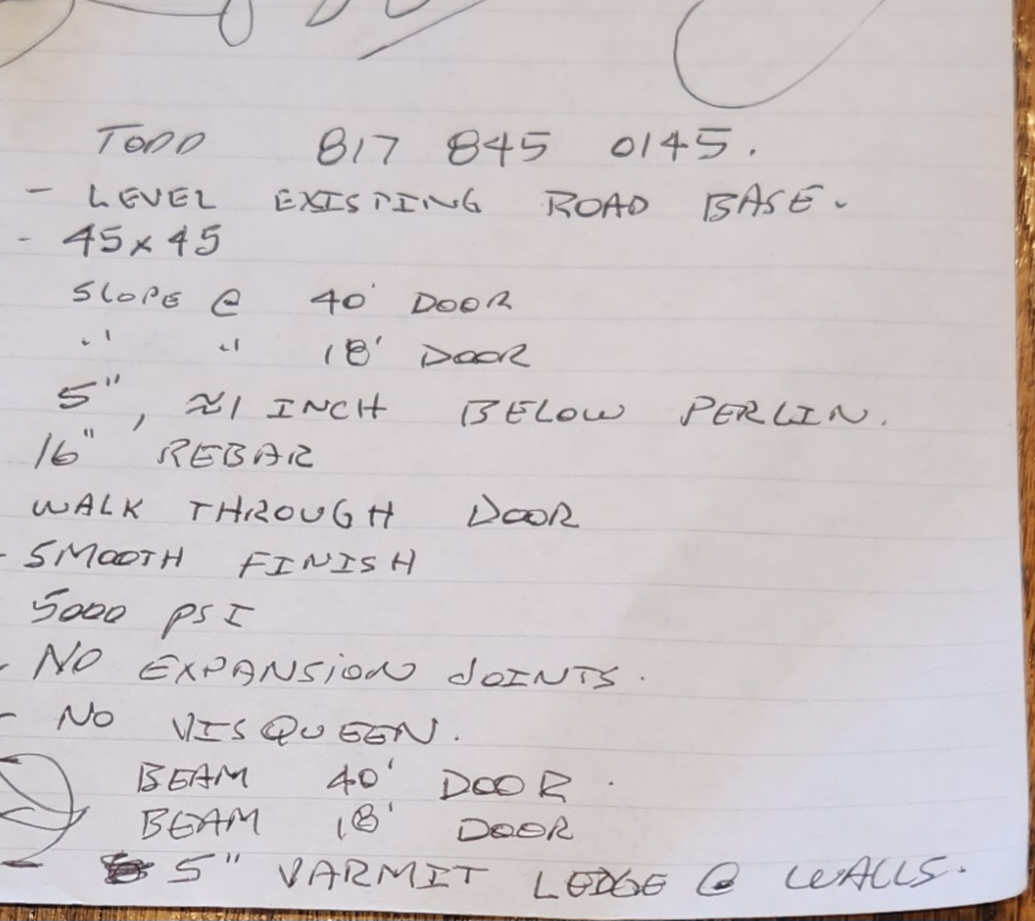 TODD 817 845 0145.
- LEVEL EXISTING ROAD BASE.
- 45x45
SLOPE @ 40' DOOR
" " 18' DOOR
5", ≈1 INCH BELOW PERLIN.
16" REBAR
WALK THROUGH DOOR
- SMOOTH FINISH
5000 PSI
- NO EXPANSION JOINTS.
- NO VISQUEEN.
BEAM 40' DOOR.
BEAM 18' DOOR
- 5" VARMIT LEDGE @ WALLS.